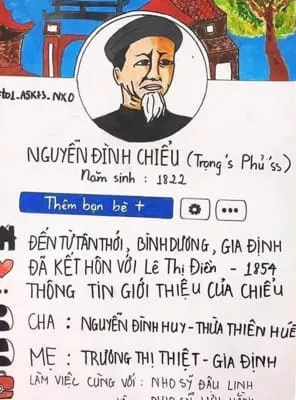 NGUYỄN ĐÌNH CHIỂU (Trọng's Phủ'ss)
Năm sinh : 1822
Thêm bạn bè +
ĐẾN TỪ TÂN THỚI, BÌNH DƯƠNG, GIA ĐỊNH
ĐÃ KẾT HÔN VỚI Lê Thị Điền - 1854
THÔNG TIN GIỚI THIỆU CỦA CHIỂU
CHA : NGUYỄN ĐÌNH HUY - THỪA THIÊN HUẾ
MẸ : TRƯƠNG THỊ THIỆT - GIA ĐỊNH
LÀM VIỆC CÙNG VỚI : NHO SỸ ĐÂU LINH